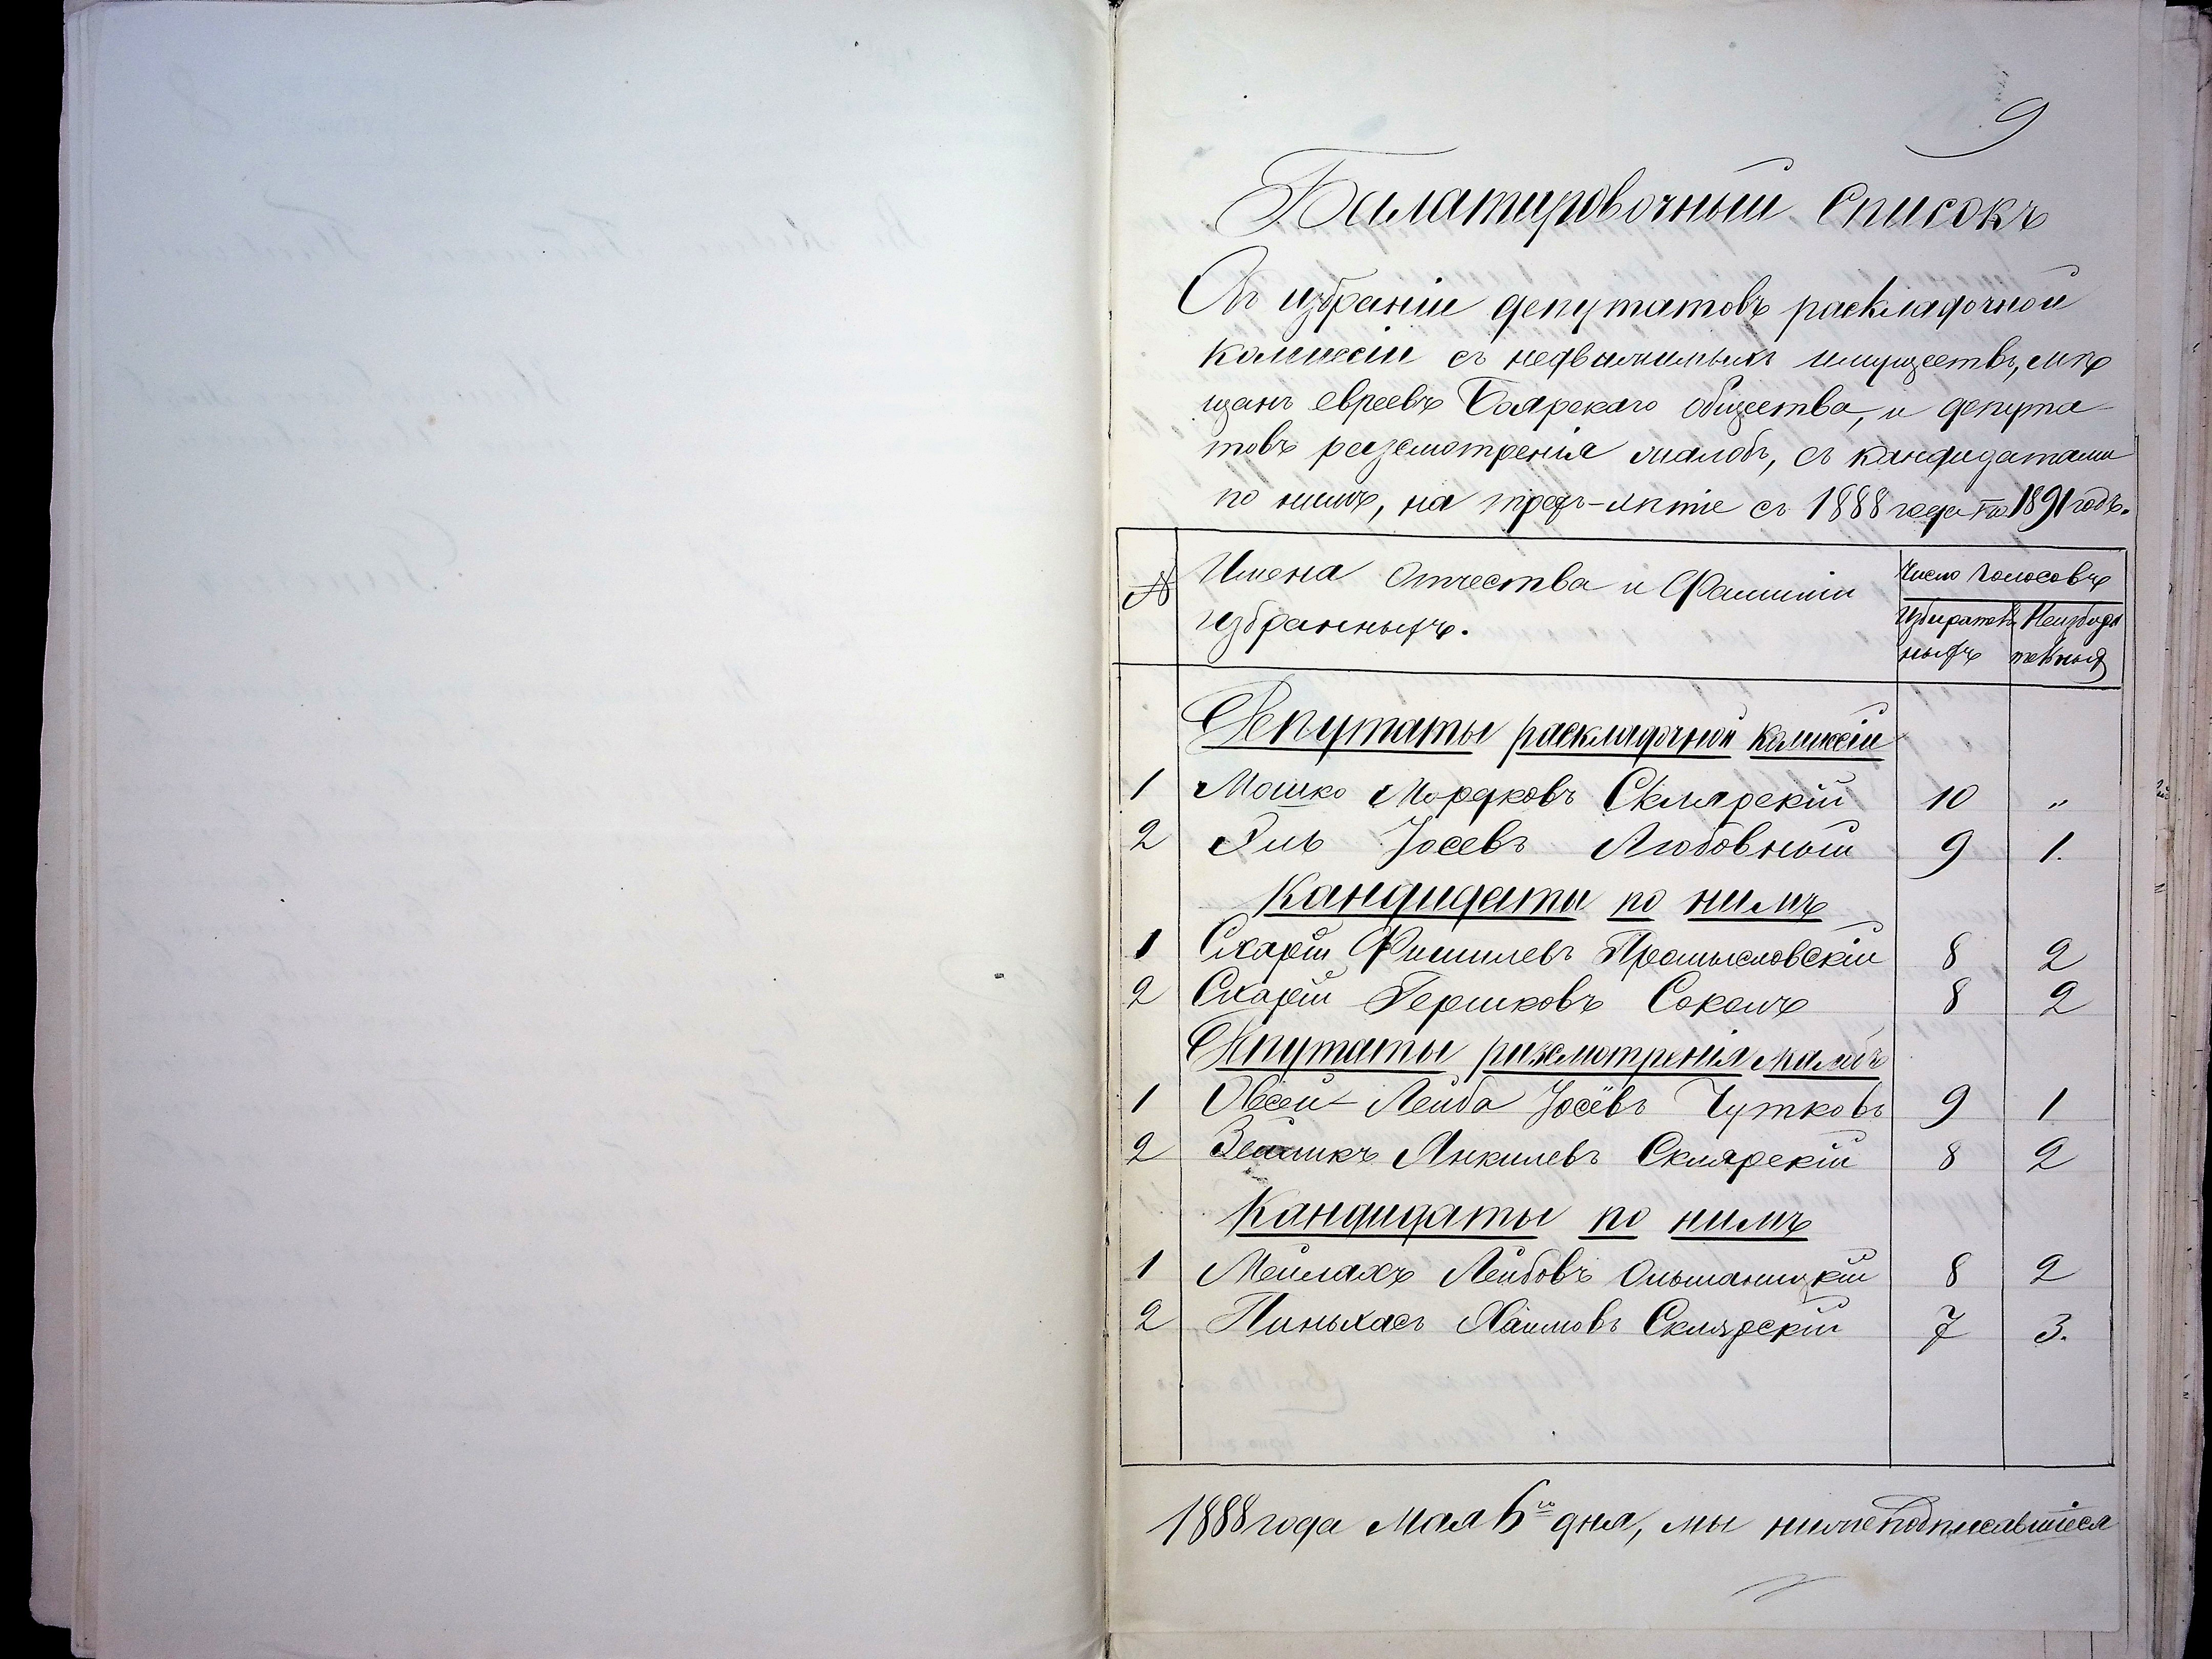 9
Балатировочный Списокъ
Объ избраніи депутатовъ раскладочной
коммисіи съ недвижимыхъ имуществъ, мѣ
щанъ евреевъ Боярскаго общества, и депута
товъ разсмотренія жалобъ, съ кандидатами
по нимъ, на трехъ-лѣтіе съ 1888 года по 1891 годъ.
№ Имена Отчества и Фамиліи Число Голосовъ
избранныхъ. Избиратель Неизбира
ныхъ тельныя
Депутаты раскладочной коммисіи
1 Мошко Мордковъ Склярскій 10 "
2 Эль Іосевъ Любовный 9 1.
Кандидаты по нимъ
1 Схарій Фишилевъ Промысловскій 8 2
2 Схарій Гершковъ Соколъ 8 2
Депутаты разсмотренія жалобъ
1 Овсей-Лейба Іосевъ Чутковъ 9 1
2 Янкилевъ Склярскій 8 2
Кандидаты по нимъ
1 Мейлахъ Лейбовъ Ольшаницкій 8 2
2 Пиньхасъ Хаимовъ Склярскій 7 3.
1888 года мая 6го дня, мы нижеподписавшіеся